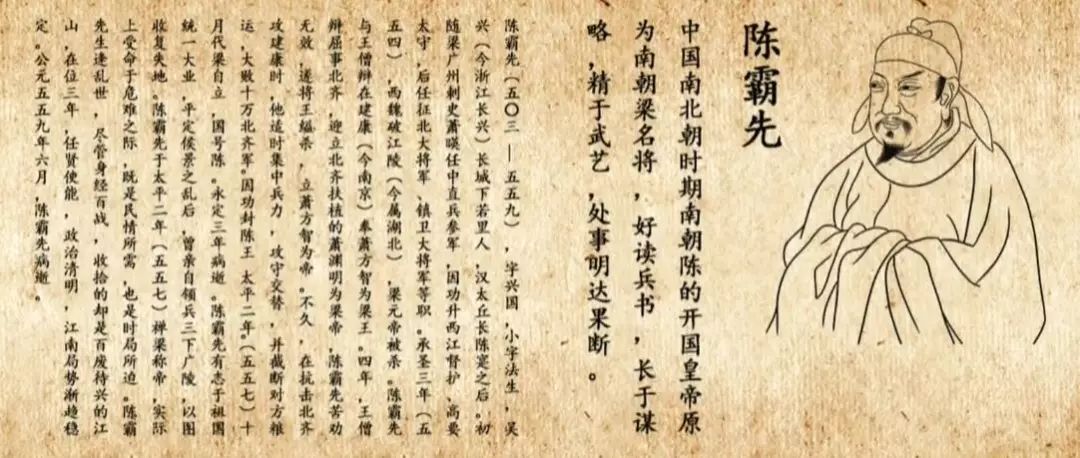 陈霸先
中国南北朝时期南朝陈的开国皇帝原
为南朝梁名将，好读兵书，长于谋
略，精于武艺，处事明达果断。
陈霸先（五〇三—五五九），字兴国，小字法生，吴
兴（今浙江长兴）长城下若里人，汉太丘长陈寔之后。初
随梁广州刺史萧暎任中直兵参军，因功升西江督护、高要
太守，后任征北大将军、镇卫大将军等职。承圣三年（五
五四），西魏破江陵（今属湖北），梁元帝被杀。陈霸先
与王僧辩在建康（今南京）奉萧方智为梁王。四年，王僧
辩屈事北齐，迎立北齐扶植的萧渊明为梁帝，陈霸先苦劝
无效，遂将王缢杀，立萧方智为帝。不久，在抗击北齐
攻建康时，他适时集中兵力，攻守交替，并截断对方粮
运，大败十万北齐军。因功封陈王 太平二年。（五五七）十
月代梁自立，国号陈。永定三年病逝。陈霸先有志于祖国
统一大业，平定侯景之乱后，曾亲自领兵三下广陵，以图
收复失地。陈霸先于太平二年（五五七）禅梁称帝，实际
上受命于危难之际，既是民情所需，也是时局所迫。陈霸
先生逢乱世，尽管身经百战，收拾的却是百废待兴的江
山，在位三年，任贤使能，政治清明，江南局势渐趋稳
定。公元五五九年六月，陈霸先病逝。